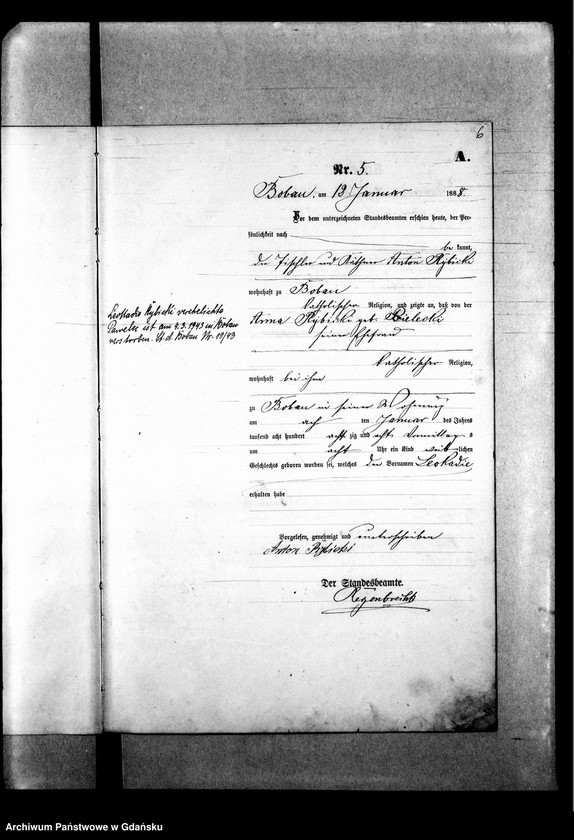 6
A.
Nr. 5.
Bobau, am 12 Januar 1888.
Vor dem unterzeichneten Standesbeamten erschien heute, der Per-
sönlichkeit nach
be kannt,
der Tischler und Käthner Anton Rybicki
wohnhaft zu Bobau
katholischer Religion, und zeigte an, daß von der
Anna Rybicki geb. Bielecki
seiner Ehefrau
katholischer Religion,
wohnhaft bei ihm
zu Bobau in seiner Wohnung
am ach ten Januar des Jahres
tausend acht hundert acht zig und acht Vormittags
um acht Uhr ein Kind weib lichen
Geschlechts geboren worden sei, welches den Vornamen Leokadie
erhalten habe
Vorgelesen, genehmigt und unterschrieben
Anton Rybicki
Der Standesbeamte.
Regenbrecht
Leokadia Rybicki verehelichte
ist am 4.3.1943 in Bobau
verstorben. St.A. Bobau Nr. 10/43
Archiwum Państwowe w Gdańsku